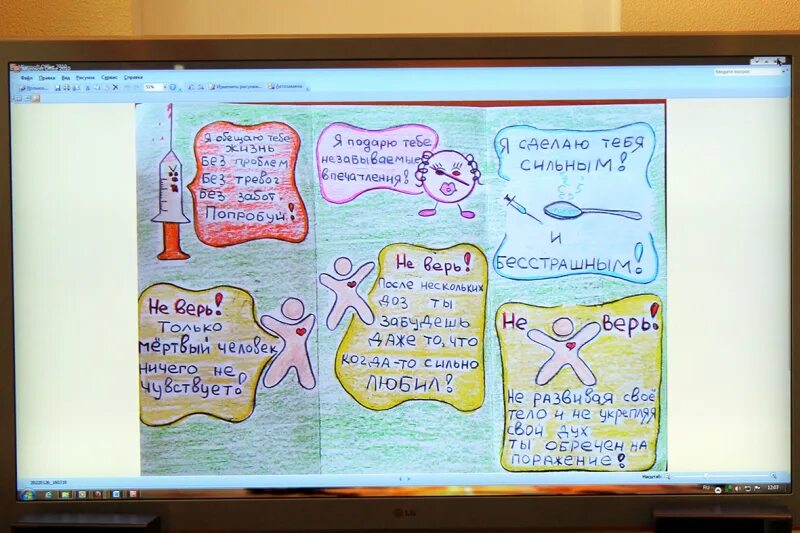 Файл Правка Вид Рисунок Сервис Справка
Изменить рисунки...
Введите вопрос
Я обещаю тебе
жизнь
без проблем
без тревог
без забот.
Попробуй!
Я подарю тебе
незабываемые
впечатления!
Я сделаю тебя
сильным!
и
бесстрашным!
Не верь!
Только
мёртвый человек
ничего не
чувствует!
Не верь!
После нескольких
доз ты
забудешь
даже то, что
когда-то сильно
любил!
Не верь!
Не развивая своё
тело и не укрепляя
свой дух
ты обречен на
поражение!
Масштаб:
RU
12:07
LG